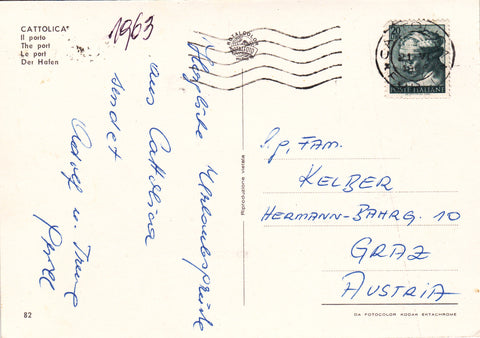 CATTOLICA
Il porto
The port
Le port
Der Hafen
1963
Herzliche Urlaubsgrüße
aus Cattolica
sendet
Adolf u.
Riproduzione vietata
POSTE ITALIANE
FAM.
KELBER
HERMANN-BAHRG. 10
GRAZ
AUSTRIA
82
DA FOTOCOLOR KODAK EKTACHROME